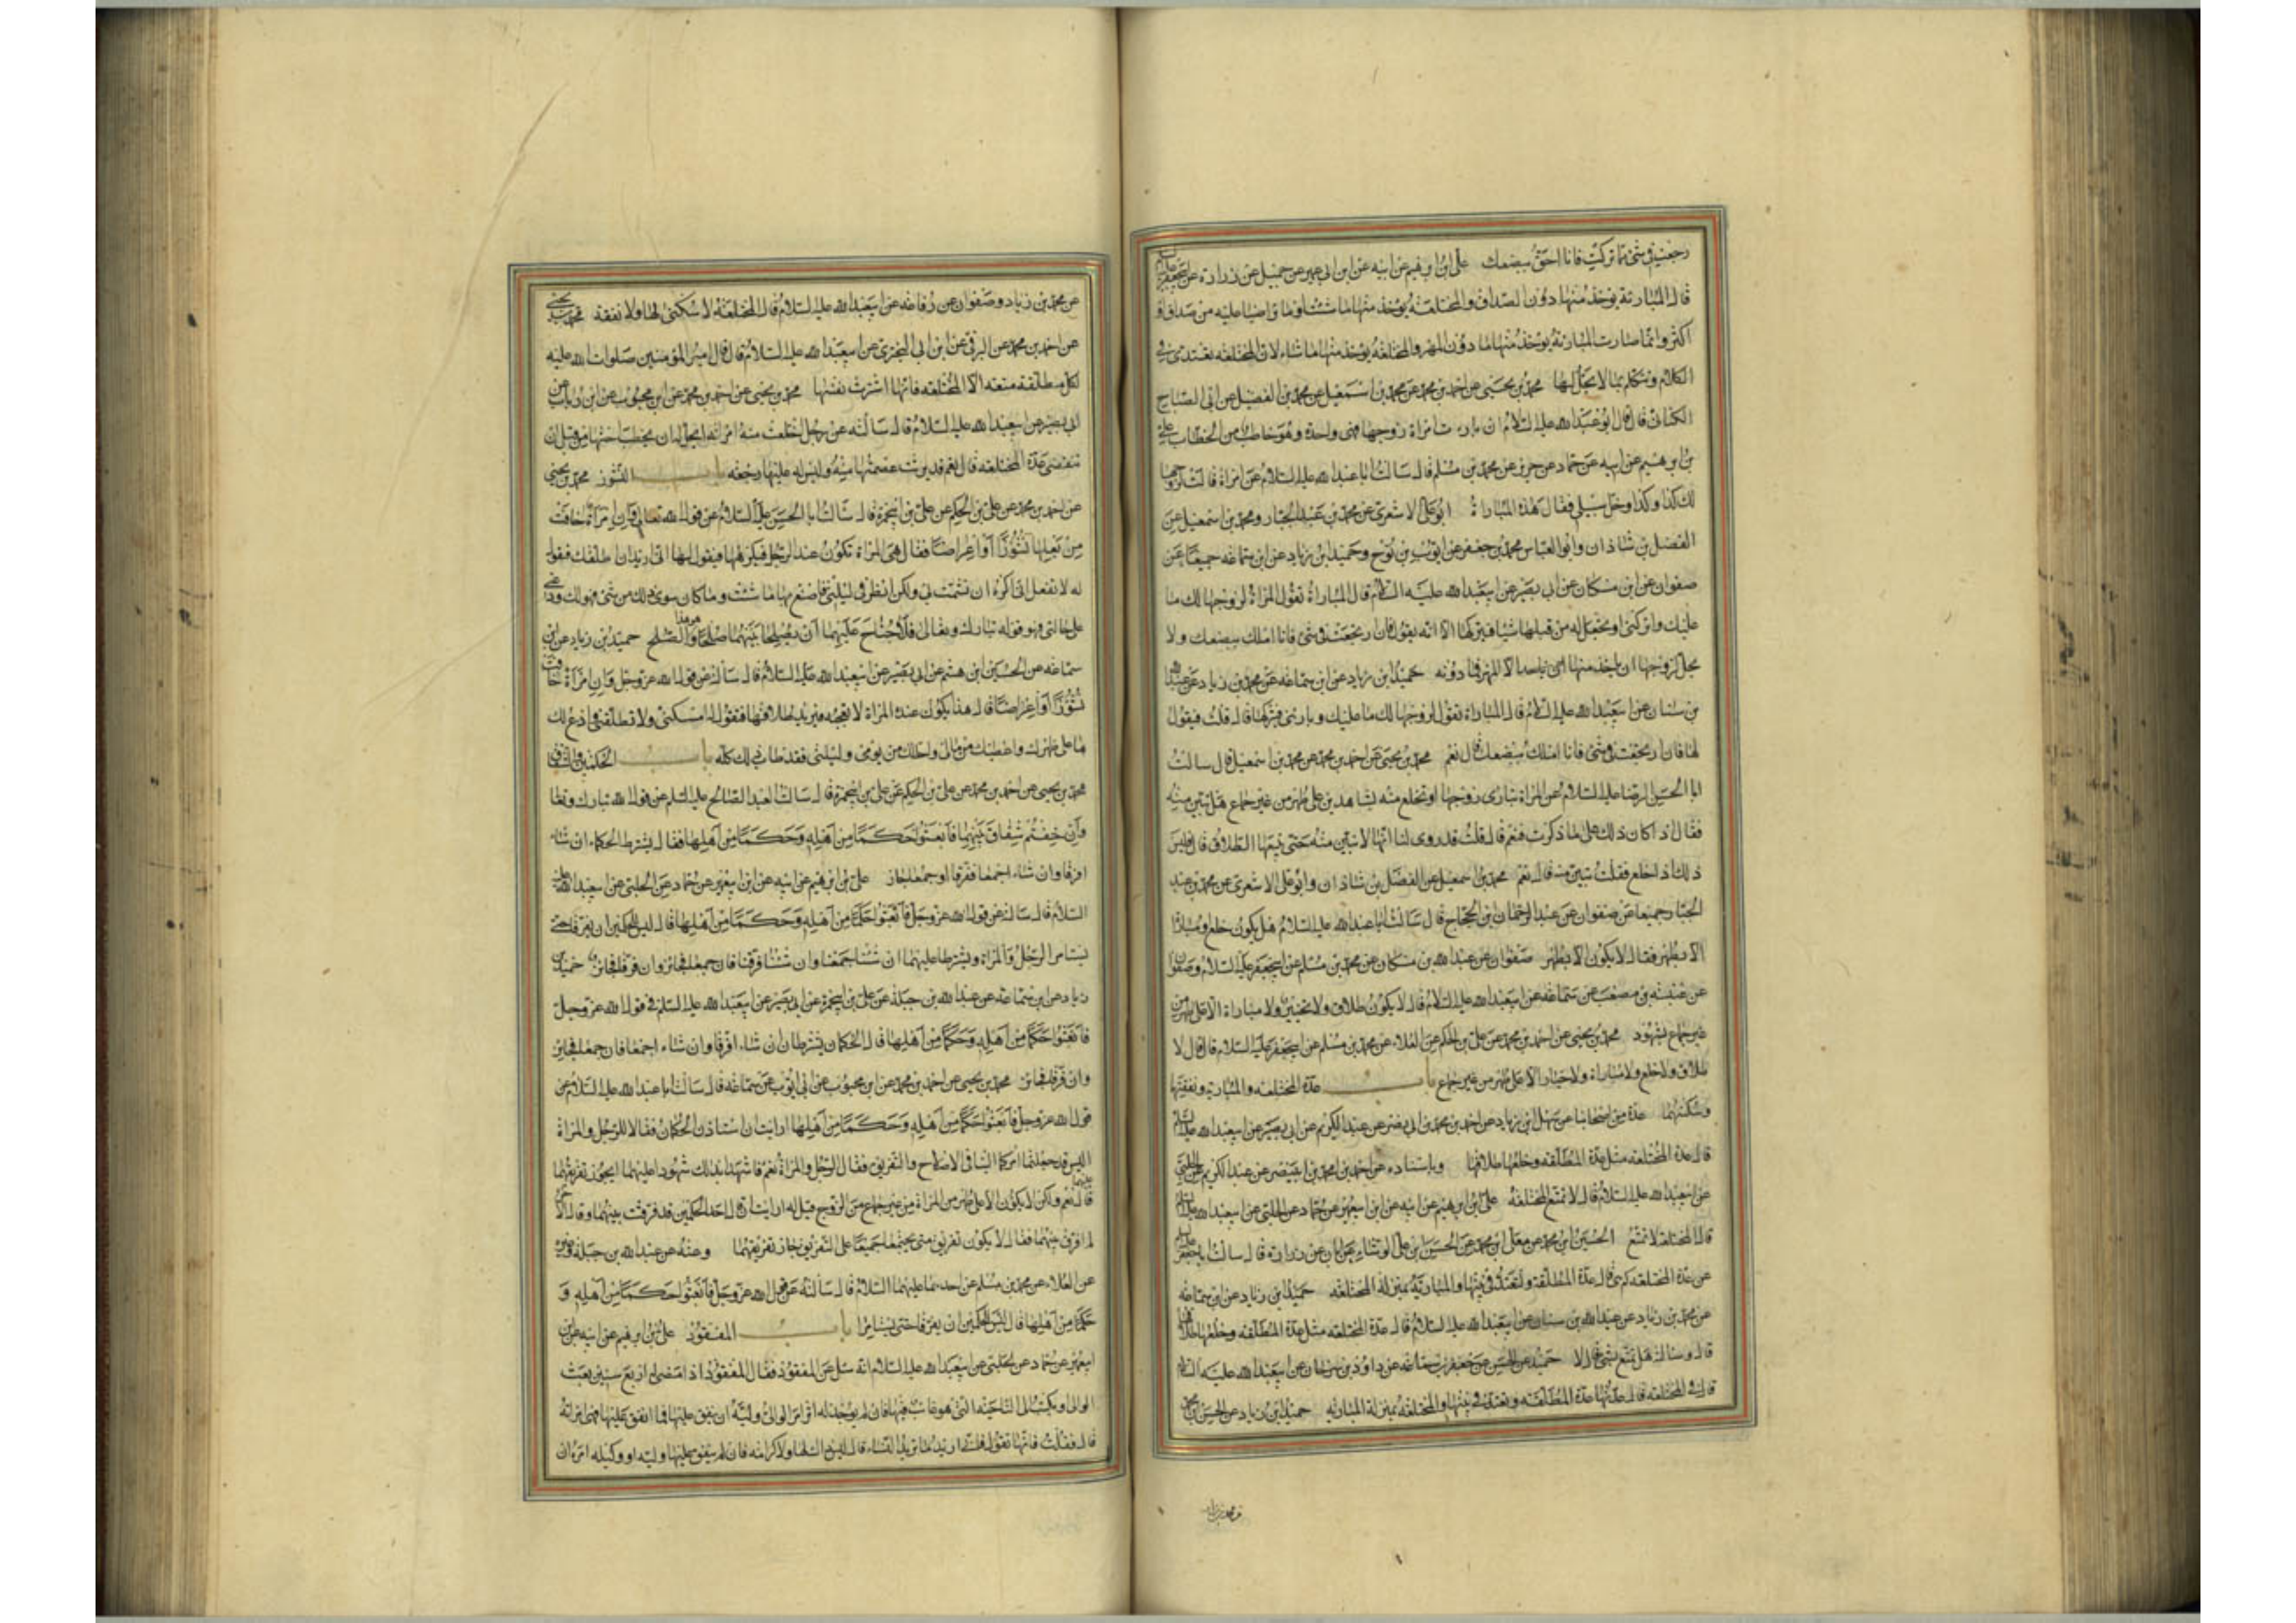 رجعت في شئ مما تركت فانا احق ببضعك علي ابن ابرهيم عن ابيه عن ابن ابي عمير عن جميل عن زرارة عن ابي جعفر عليه السلم
قال المبارئة يؤخذ منها دون الصداق والمختلعة يؤخذ منها ما شئت او ما تراضيا عليه من صداق او
اكثر وانما صارت المبارئة يؤخذ منها ما دون المهر والمختلعة يؤخذ منها ما شاء لان المختلعة تعتدى في
الكلام وتتكلم بما لا يحل لها محمد بن يحيى عن احمد بن محمد عن محمد بن اسمعيل عن محمد بن الفضيل عن ابي الصباح
الكناني قال قال ابو عبدالله عليه السلام ان بارءت امراة زوجها فهي واحدة وهو خاطب من الخطاب علي
بن ابرهيم عن ابيه عن حماد عن حريز عن محمد بن مسلم قال سالت ابا عبدالله عليه السلام عن امراة قالت لزوجها
لك كذا وكذا وخل سبيلي فقال هذه المباراة ابو علي الاشعري عن محمد بن عبد الجبار ومحمد بن اسمعيل عن
الفضل بن شاذان وابو العباس محمد بن جعفر عن ايوب بن نوح وحميد ابن زياد عن ابن سماعه جميعا عن
صفوان عن ابن مسكان عن ابي بصير عن ابي عبدالله عليه السلام قال المباراة تقول المراة لزوجها لك ما
عليك واتركني او تجعل له من قبلها شيئا فيتركها الا انه يقول فان ارتجعت في شئ فانا املك ببضعك ولا
يحل لزوجها ان ياخذ منها الا المهر فما دونه حميد ابن زياد عن ابن سماعه عن محمد بن زياد عن عبدالله
بن سنان عن ابي عبدالله عليه السلام قال المباراة تقول لزوجها لك ما عليك وبارئني فيتركها قال قلت فيقول
لها فان ارتجعت في شئ فانا املك ببضعك قال نعم محمد بن يحيى عن احمد بن محمد عن محمد بن اسمعيل قال سالت
ابا الحسن الرضا عليه السلام عن المراة تبارى زوجها او تختلع منه بشاهدين على طهر من غير جماع هل تبين منه
فقال اذا كان ذلك على ما ذكرت فنعم قال قلت قد روى لنا انها لا تبين منه حتى يتبعها الطلاق قال فليس
ذلك اذا خلع فقلت تبين منه قال نعم محمد بن اسمعيل عن الفضل بن شاذان وابو علي الاشعري عن محمد بن عبد
الجبار جميعا عن صفوان عن عبد الرحمان بن الحجاج قال سالت ابا عبدالله عليه السلام هل يكون خلع او مباراة
الا بطهر فقال لا يكون الا بطهر صفوان عن عبدالله بن مسكان عن محمد بن مسلم عن ابي جعفر عليه السلام وصفوان
عن عنبسه بن مصعب عن سماعه عن ابي عبدالله عليه السلام قال لا يكون طلاق ولا تخيير ولا مباراة الا على طهر من
غير جماع بشهود محمد بن يحيى عن احمد بن محمد عن علي بن الحكم عن العلاء عن محمد بن مسلم عن ابي جعفر عليه السلام قال قال لا
طلاق ولا خلع ولا مباراة ولا خيار الا على طهر من غير جماع باب عدة المختلعه والمبارية ونفقتها
وسكنيهما عدة من اصحابنا عن سهل ابن زياد عن احمد بن محمد بن ابي نصر عن عبد الكريم عن ابي بصير عن ابي عبدالله عليه السلم
قال عدة المختلعه مثل عدة المطلقه وخلعها طلاقها وباسناده عن احمد بن محمد بن ابي نصر عن عبد الكريم عن الحلبي
عن ابي عبدالله عليه السلام قال لا تمتع المختلعة علي ابن ابرهيم عن ابيه عن ابن ابي عمير عن حماد عن الحلبي عن ابي عبدالله عليه السلم
قال المختلعة لا تمتع الحسين ابن محمد عن معلى ابن محمد عن الحسن ابن علي الوشاء عن ابان عن زرارة قال سالت ابا جعفر عليه السلم
عن عدة المختلعه كم هي قال عدة المطلقة ولتعتد في بيتها والمبارئة بمنزلة المختلعه حميد ابن زياد عن ابن سماعه
عن محمد بن زياد عن عبدالله بن سنان عن ابي عبدالله عليه السلام قال عدة المختلعه مثل عدة المطلقه وخلعها طلاقها
قال وسالته هل تمتع بشئ قال لا حميد عن الحسن عن جعفر بن سماعه عن داود بن سرحان عن ابي عبدالله عليه السلام
قال في المختلعه قال عدتها عدة المطلقه وتعتد في بيتها والمختلعة بمنزلة المباريه حميد ابن زياد عن الحسن بن محمد
عن محمد بن زياد
عن محمد بن زياد وصفوان عن رفاعه عن ابي عبدالله عليه السلام قال المختلعة لا سكنى لها ولا نفقة محمد بن يحيى
عن احمد بن محمد عن البرقي عن ابي البختري عن ابي عبدالله عليه السلام قال قال امير المؤمنين صلوات الله عليه
لكل مطلقة متعه الا المختلعه فانها اشترت نفسها محمد بن يحيى عن احمد بن محمد عن ابن محبوب عن ابن رباب عن
ابي بصير عن ابي عبدالله عليه السلام قال سالته عن رجل اختلعت منه امراته ايحل له ان يخطب اختها من قبل ان
تنقضى عدة المختلعه قال نعم قد برئت عصمتها منه وليس له عليها رجعه باب النشوز محمد بن يحيى
عن احمد بن محمد عن علي بن الحكم عن علي بن ابي حمزة قال سالت ابا الحسن عليه السلام عن قول الله تعالى وان امراة خافت
من بعلها نشوزا او اعراضا فقال هي المراة تكون عند الرجل فيكرهها فيقول لها اني اريد ان اطلقك فتقول
له لا تفعل اني اكره ان تشمت بي ولكن انظر في ليلتي فاصنع بها ما شئت وما كان سوى ذلك من شئ فهو لك ودعني
على حالتي فهو قوله تبارك وتعالى فلا جناح عليهما ان يصلحا بينهما صلحا والصلح حميد بن زياد عن ابن
سماعه عن الحسين ابن هشم عن ابي بصير عن ابي عبدالله عليه السلام قال سالته عن قول الله عز وجل وان امراة خافت
نشوزا او اعراضا قال هذا يكون عنده المراة لا تعجبه فيريد طلاقها فتقول له امسكني ولا تطلقني وادع لك
ما على ظهرك واعطيك من مالي واحللك من يومى وليلتى فقد طاب ذلك كله باب الحكمين والشقاق
محمد بن يحيى عن احمد بن محمد عن علي بن الحكم عن علي بن ابي حمزة قال سالت العبد الصالح عليه السلم عن قول الله تبارك وتعالى
وان خفتم شقاق بينهما فابعثوا حكما من اهله وحكما من اهلها فقال يشترط الحكمان ان شاء
افرقا وان شاء اجمعا ففرقا او جمعا جاز علي بن ابرهيم عن ابيه عن ابن ابي عمير عن حماد عن الحلبي عن ابي عبدالله عليه
السلام قال سالته عن قول الله عز وجل فابعثوا حكما من اهله وحكما من اهلها قال ليس للحكمين ان يفرقا حتى
يستامرا الرجل والمراة ويشترطا عليهما ان شئنا جمعنا وان شئنا فرقنا فان جمعا فجائز وان فرقا فجائز حميد بن
زياد عن ابن سماعه عن عبدالله بن جبلة عن علي بن ابي حمزة عن ابي بصير عن ابي عبدالله عليه السلم في قول الله عز وجل
فابعثوا حكما من اهله وحكما من اهلها قال الحكمان يشترطان ان شاء افرقا وان شاء اجمعا فان جمعا فجائز
وان فرقا فجائز محمد بن يحيى عن احمد بن محمد عن ابن محبوب عن ابي ايوب عن سماعه قال سالت ابا عبدالله عليه السلام عن
قول الله عز وجل فابعثوا حكما من اهله وحكما من اهلها ارايت ان استاذن الحكمان فقالا للرجل والمراة
اليس قد جعلتما امركما الينا في الاصلاح والتفريق فقال الرجل والمراة نعم فاشهدا بذلك شهودا عليهما ايجوز تفريقهما عليهما
قال نعم ولكن لا يكون الا على طهر من المراة من غير جماع من الزوج قيل له ارايت ان قال احد الحكمين قد فرقت بينهما وقال الاخر
لم افرق بينهما فقال لا يكون تفريق حتى يجتمعا جميعا على التفريق جاز تفريقهما وعنه عن عبدالله بن جبلة وغيره
عن العلاء عن محمد بن مسلم عن احدهما عليهما السلام قال سالته عن قول الله عز وجل فابعثوا حكما من اهله و
حكما من اهلها قال ليس للحكمين ان يفرقا حتى يستامرا باب المفقود علي بن ابرهيم عن ابيه عن ابن
ابي عمير عن حماد عن الحلبي عن ابي عبدالله عليه السلام انه سئل عن المفقود فقال المفقود اذا مضى له اربع سنين يبعث
الوالى او يكتب الى الناحيه التى هو غائب فيها فان لم يوجد له اثر امر الوالي وليه ان ينفق عليها فما انفق عليها فهي امراته
قال فقلت فانها تقول فاني اريد ما تريد النساء قال ليس ذلك لها ولا كرامه فان لم ينفق عليها وليه او وكيله امره ان